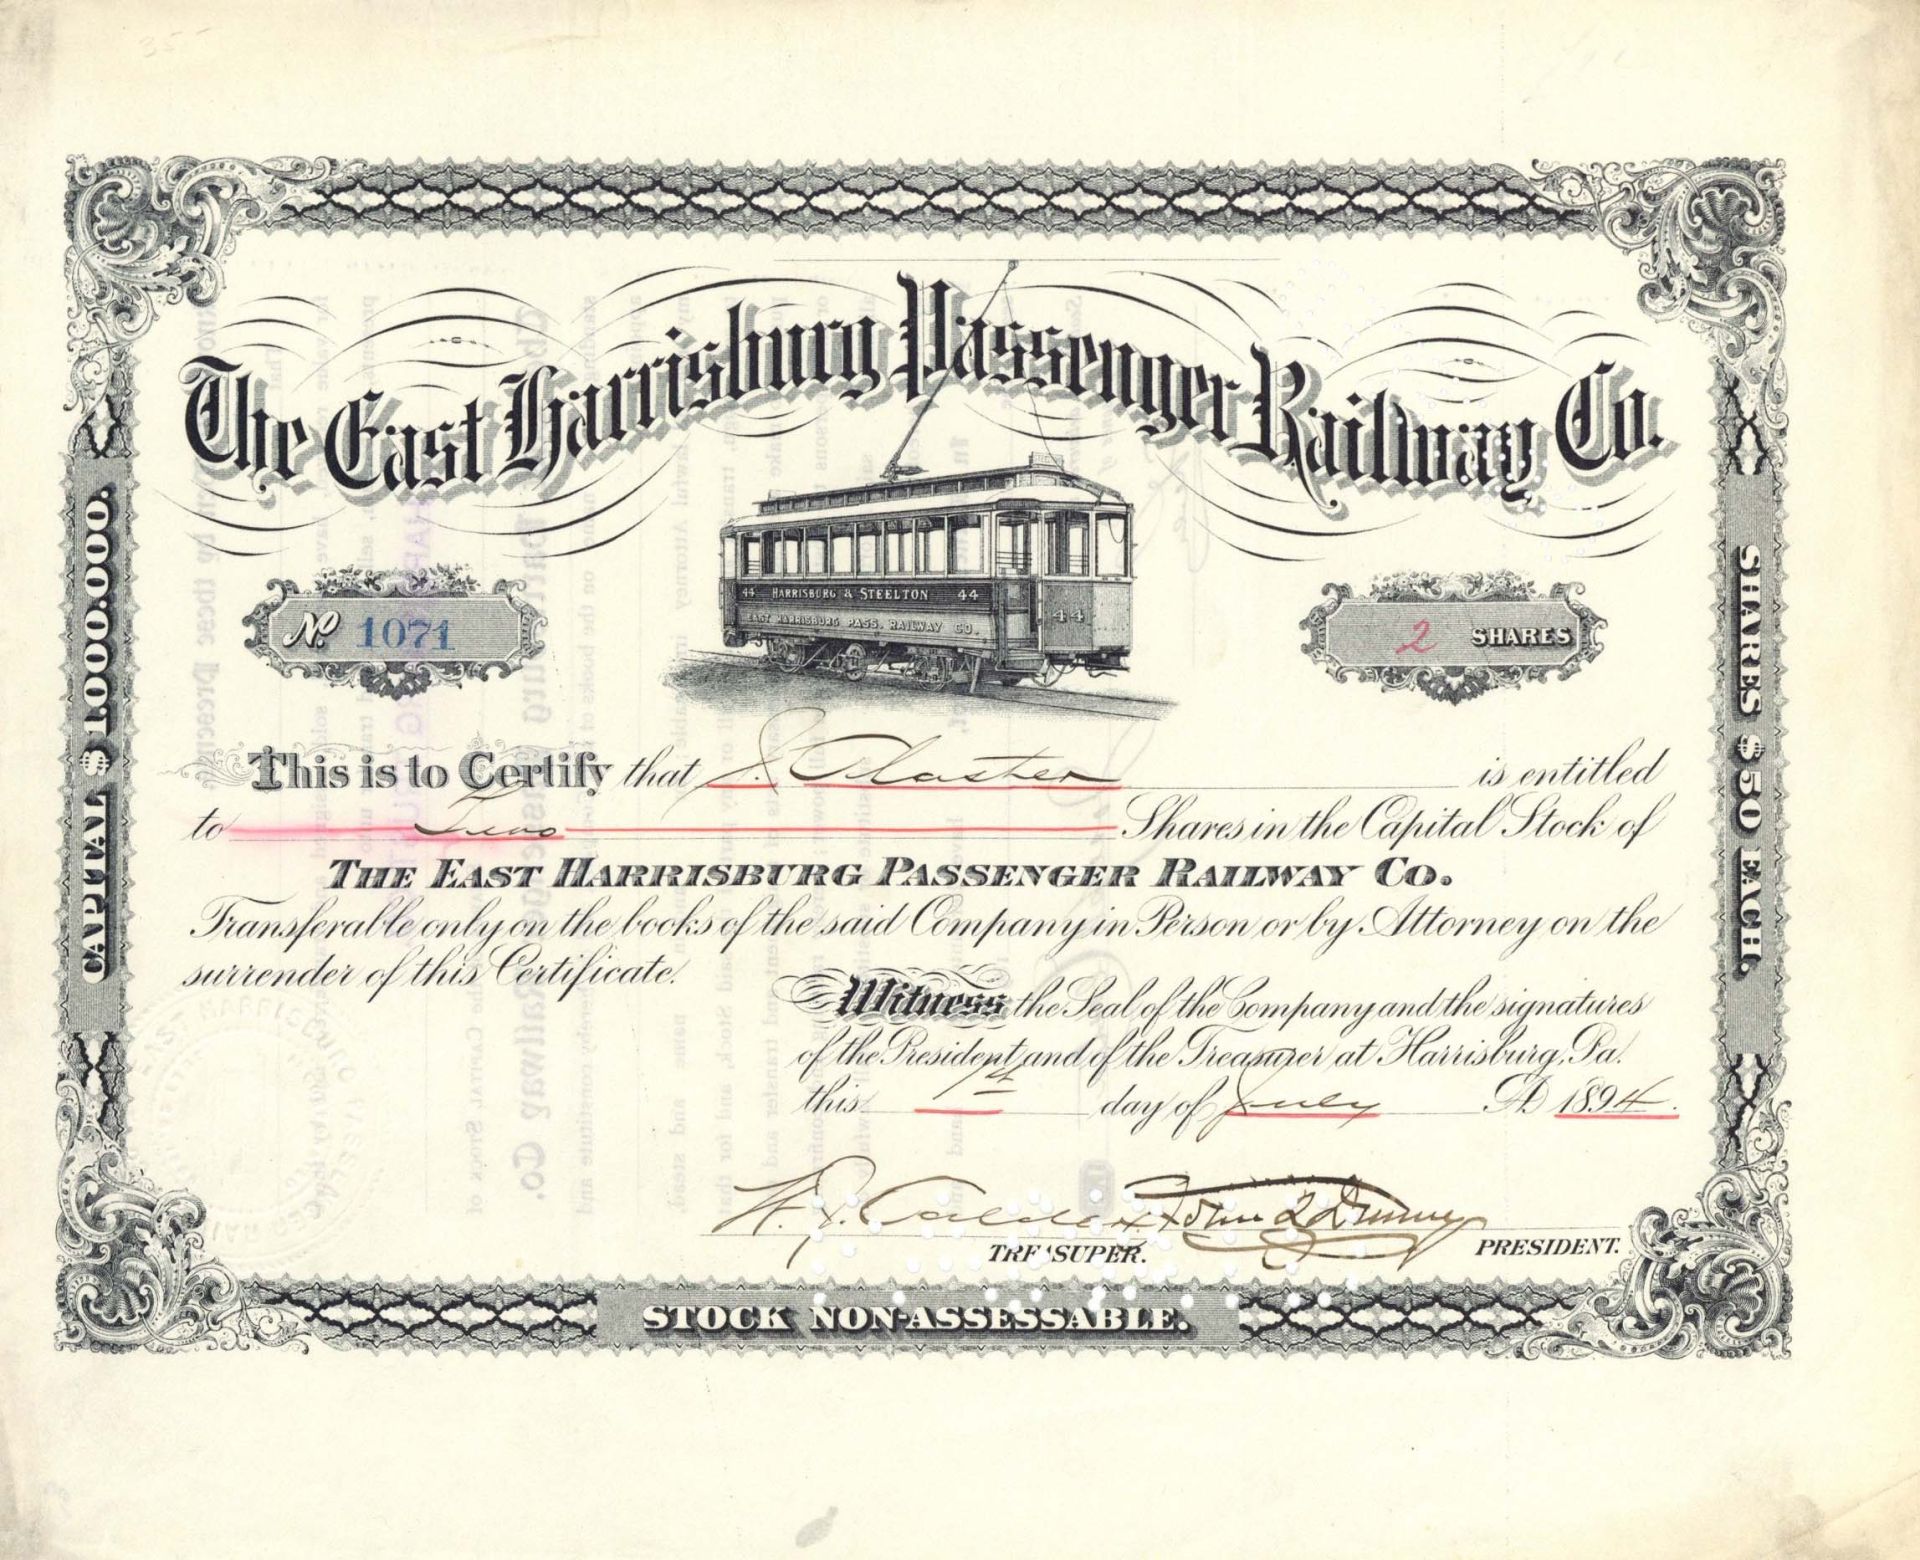 The East Harrisburg Passenger Railway Co.
No. 1071
44 HARRISBURG & STEELTON 44
EAST HARRISBURG PASS. RAILWAY CO.
44
2 SHARES
CAPITAL $1.000.000.
SHARES $50 EACH.
This is to Certify that J. Claster is entitled
to Two Shares in the Capital Stock of
THE EAST HARRISBURG PASSENGER RAILWAY CO.
Transferable only on the books of the said Company in Person or by Attorney on the
surrender of this Certificate.
Witness the Seal of the Company and the signatures
of the President and of the Treasurer at Harrisburg, Pa.
this 7th day of July AD 1894.
TREASURER.
PRESIDENT.
STOCK NON-ASSESSABLE.